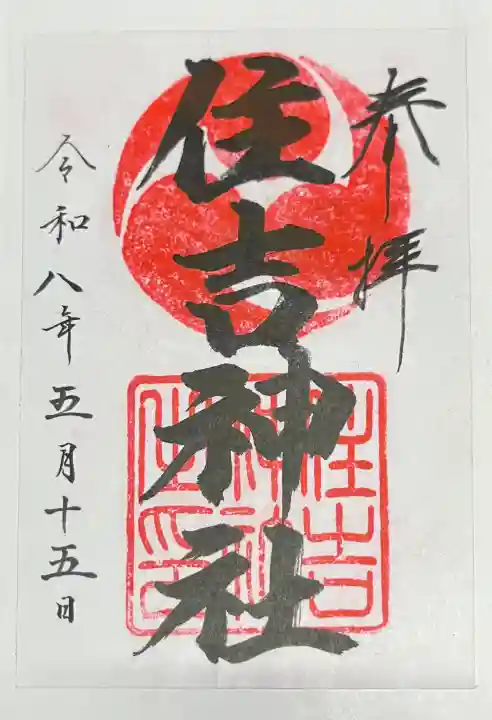 参拝
住吉神社
住吉
神社
之印
令和八年五月十五日